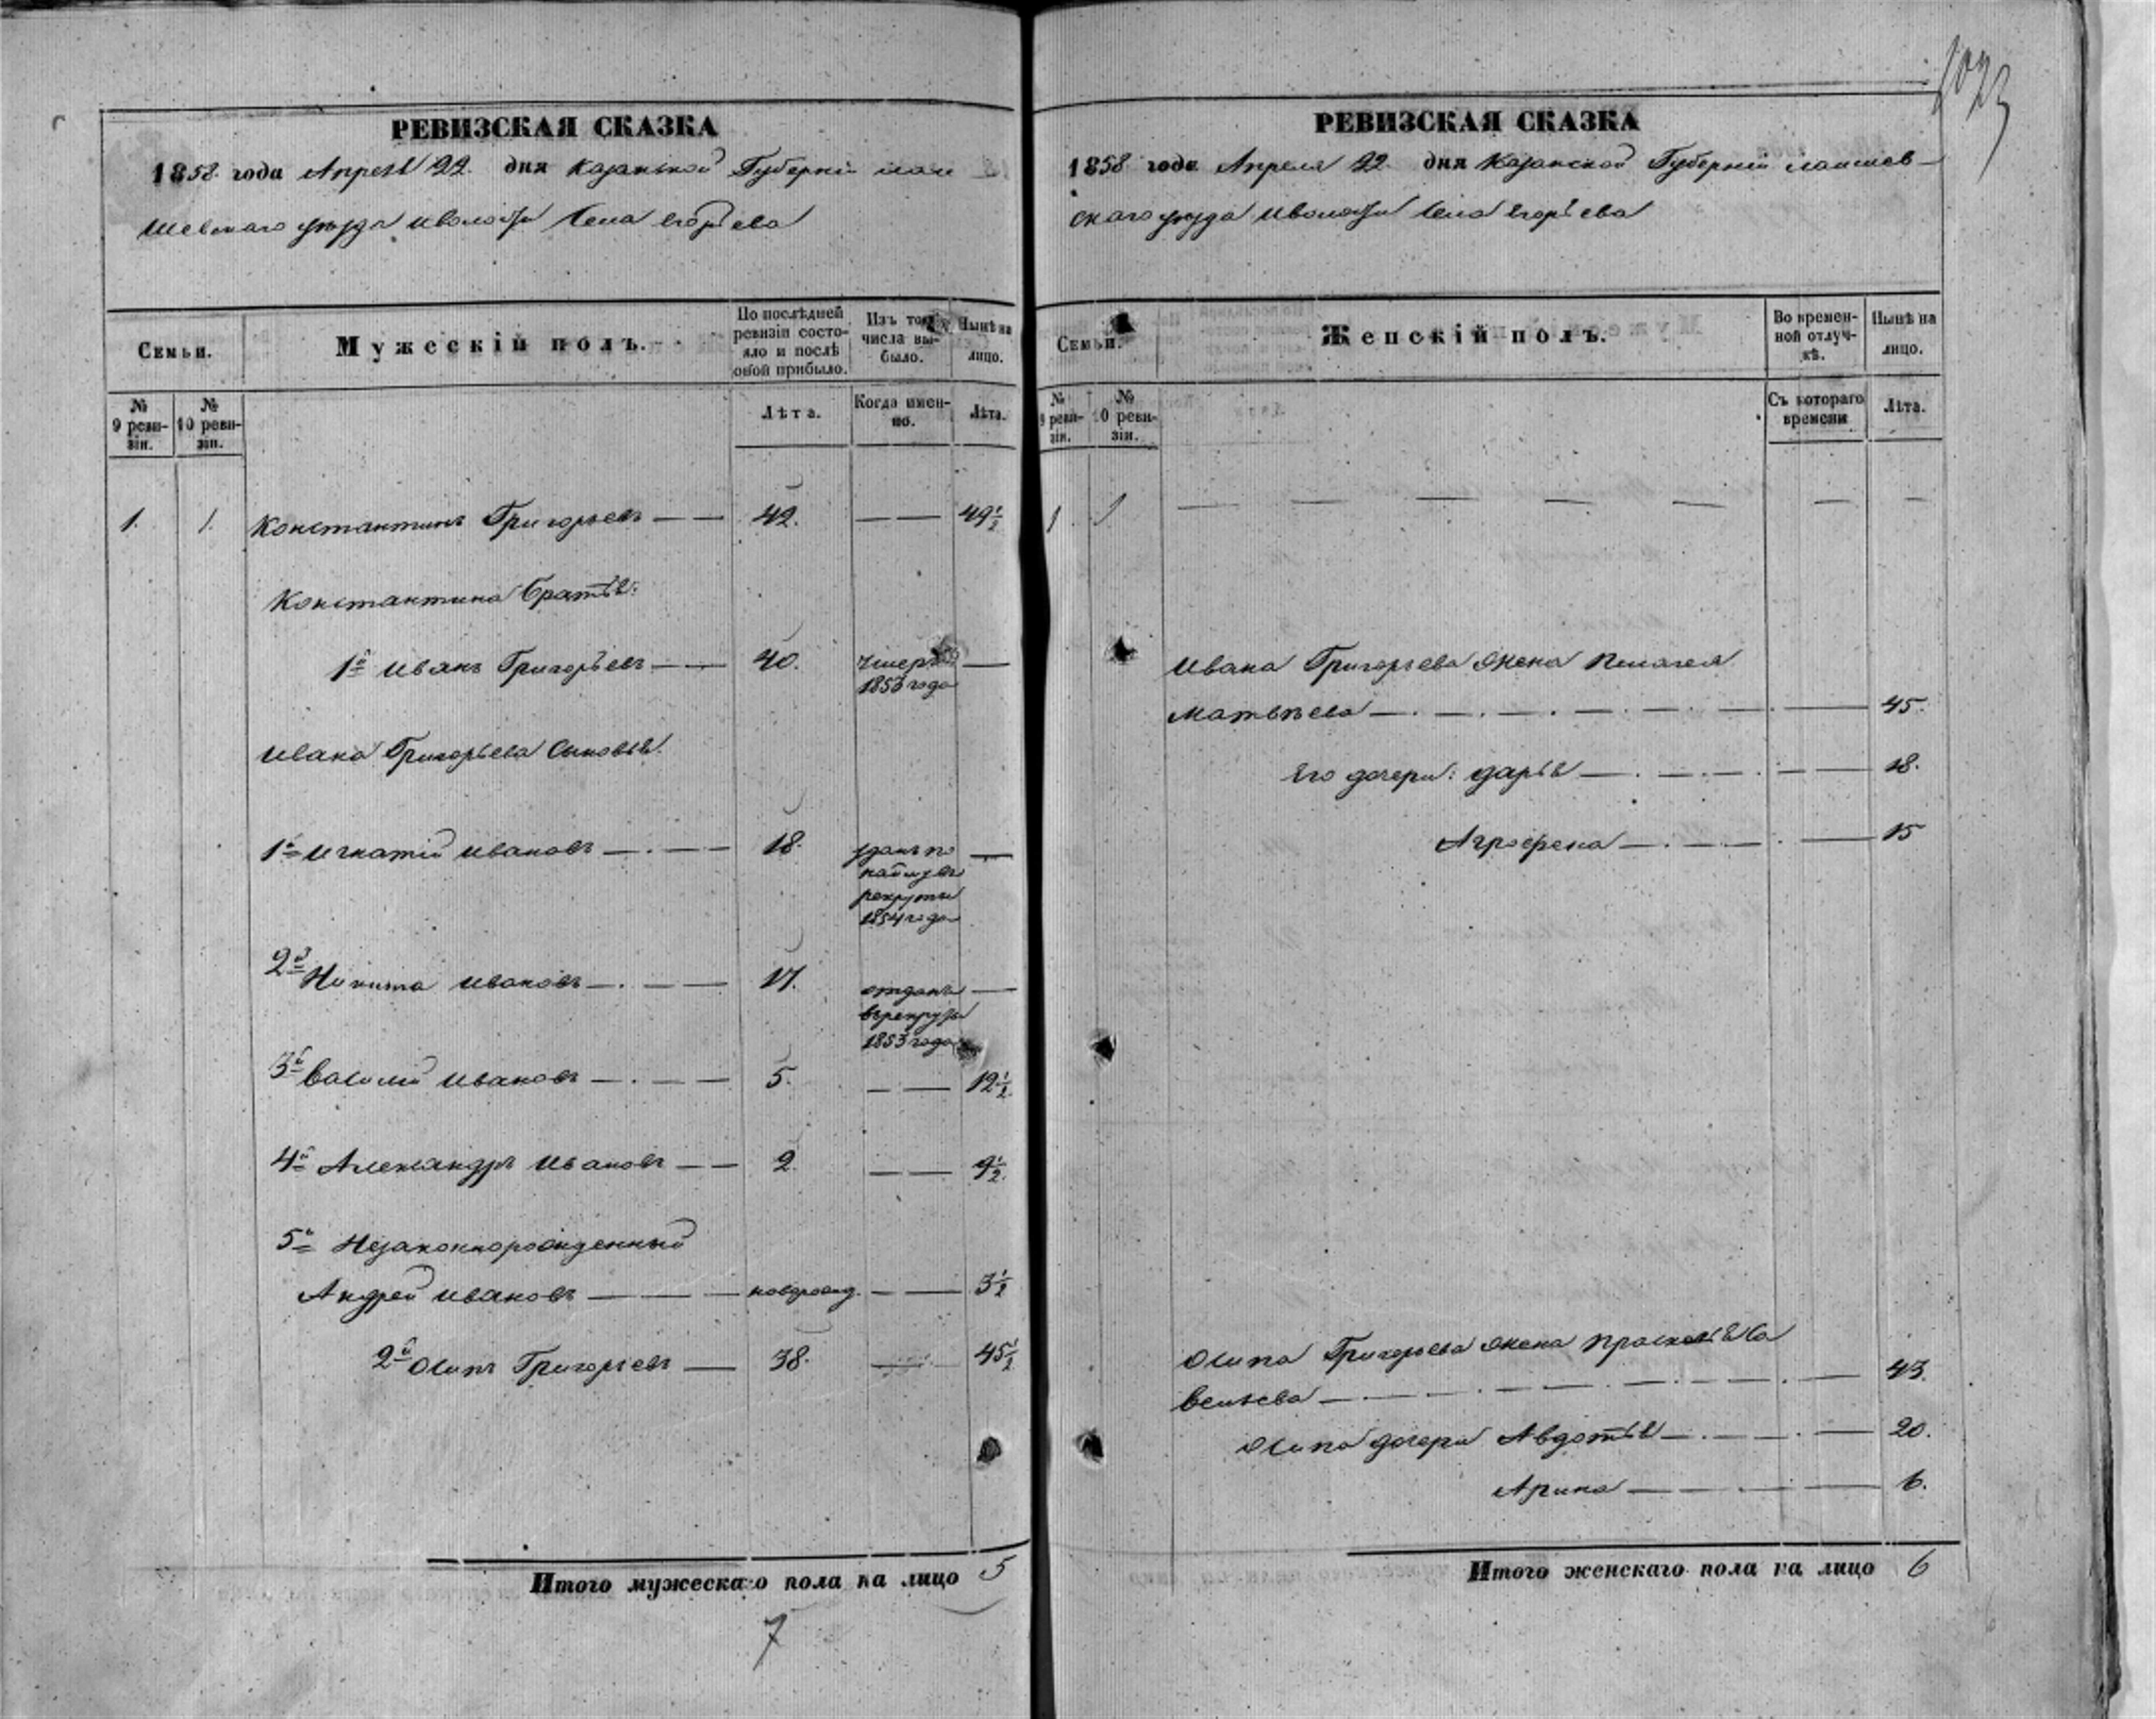 1023
РЕВИЗСКАЯ СКАЗКА
1858 года Апреля 22 дня Казанской Губерніи Лаи
шевскаго уѣзда и волости Села Егорьева
Семьи.
Мужескій полъ.
По послѣдней ревизіи состояло и послѣ оной прибыло.
Изъ того числа выбыло.
Нынѣ на лицо.
№ 9 ревизіи.
№ 10 ревизіи.
Лѣта.
Когда именно.
Лѣта.
1. 1. Константинъ Григорьевъ — — 42. — — 49½
Константина братья:
1й Иванъ Григорьевъ — — 40. умеръ —
1853 года
Ивана Григорьева сыновья:
1й Игнатій Ивановъ — . — — 18. —
рекруты
1854 года
2й Никита Ивановъ — . — — 17. отданъ —
въ рекруты
1853 года
3й Василій Ивановъ — . — — 5. — — 12½
4й Александръ Ивановъ — — 2. — — 9½
5й Незаконнорожденный
Андрей Ивановъ — — — новорожд. — — 3½
2й Осипъ Григорьевъ — 38. — 45½
Итого мужескаго пола на лицо 5
7
РЕВИЗСКАЯ СКАЗКА
1858 года Апреля 22 дня Казанской Губерніи Лаишев-
скаго уѣзда и волости Села Егорьева
Семьи.
Женскій полъ.
Во временной отлучкѣ.
Нынѣ на лицо.
№ 9 ревизіи.
№ 10 ревизіи.
Съ котораго времени
Лѣта.
1 1 — — — — — — —
Ивана Григорьева жена Пелагея
Матвѣева — . — . — . — — — 45.
Его дочери: Дарья — . — . — — — 18.
Агрофена — . — . — — 15
Осипа Григорьева жена Прасковья Са
вельева — . — . — — . — . — 43.
Осипа дочери Авдотья — . — . — 20.
Арина — — — — 6.
Итого женскаго пола на лицо 6